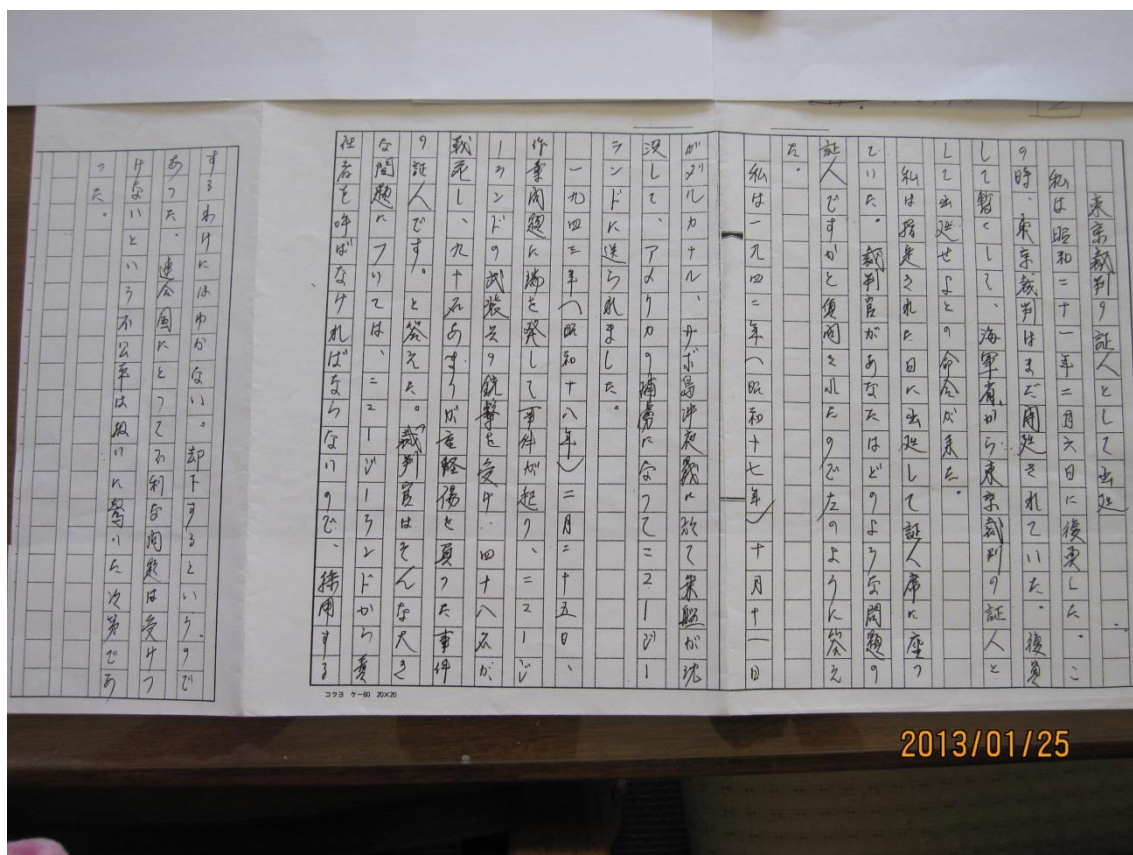 東京裁判の証人として出廷
私は昭和二十一年二月六日に復員した。こ
の時、東京裁判はまだ開廷されていた。復員
して暫くして、海軍省から東京裁判の証人と
して出廷せよとの命令が来た。
私は指定された日に出廷して証人席に座っ
ていた。裁判官があなたはどのような問題の
証人ですかと質問されたので左のように答え
た。
私は一九四二年(昭和十七年)十月十一日
がダルカナル、サボ島沖夜戦に於て乗艦が沈
没して、アメリカの捕虜になってニュージー
ランドに送られました。
一九四三年(昭和十八年)二月二十五日、
作業問題に端を発して事件が起り、ニュージ
ーランドの武装兵の銃撃を受け、四十八名が
戦死し、九十名あまりが重軽傷を負った事件
の証人です。と答えた。裁判官はそんな大き
な問題については、ニュージーランドから責
任者を呼ばなければならないので、採用する
するわけにはゆかない。却下するという。ので
あった。連合国にとって不利な問題は受けつ
けないという不公平は扱いに驚いた次第であ
った。
コクヨ ケー60 20×20
2013/01/25